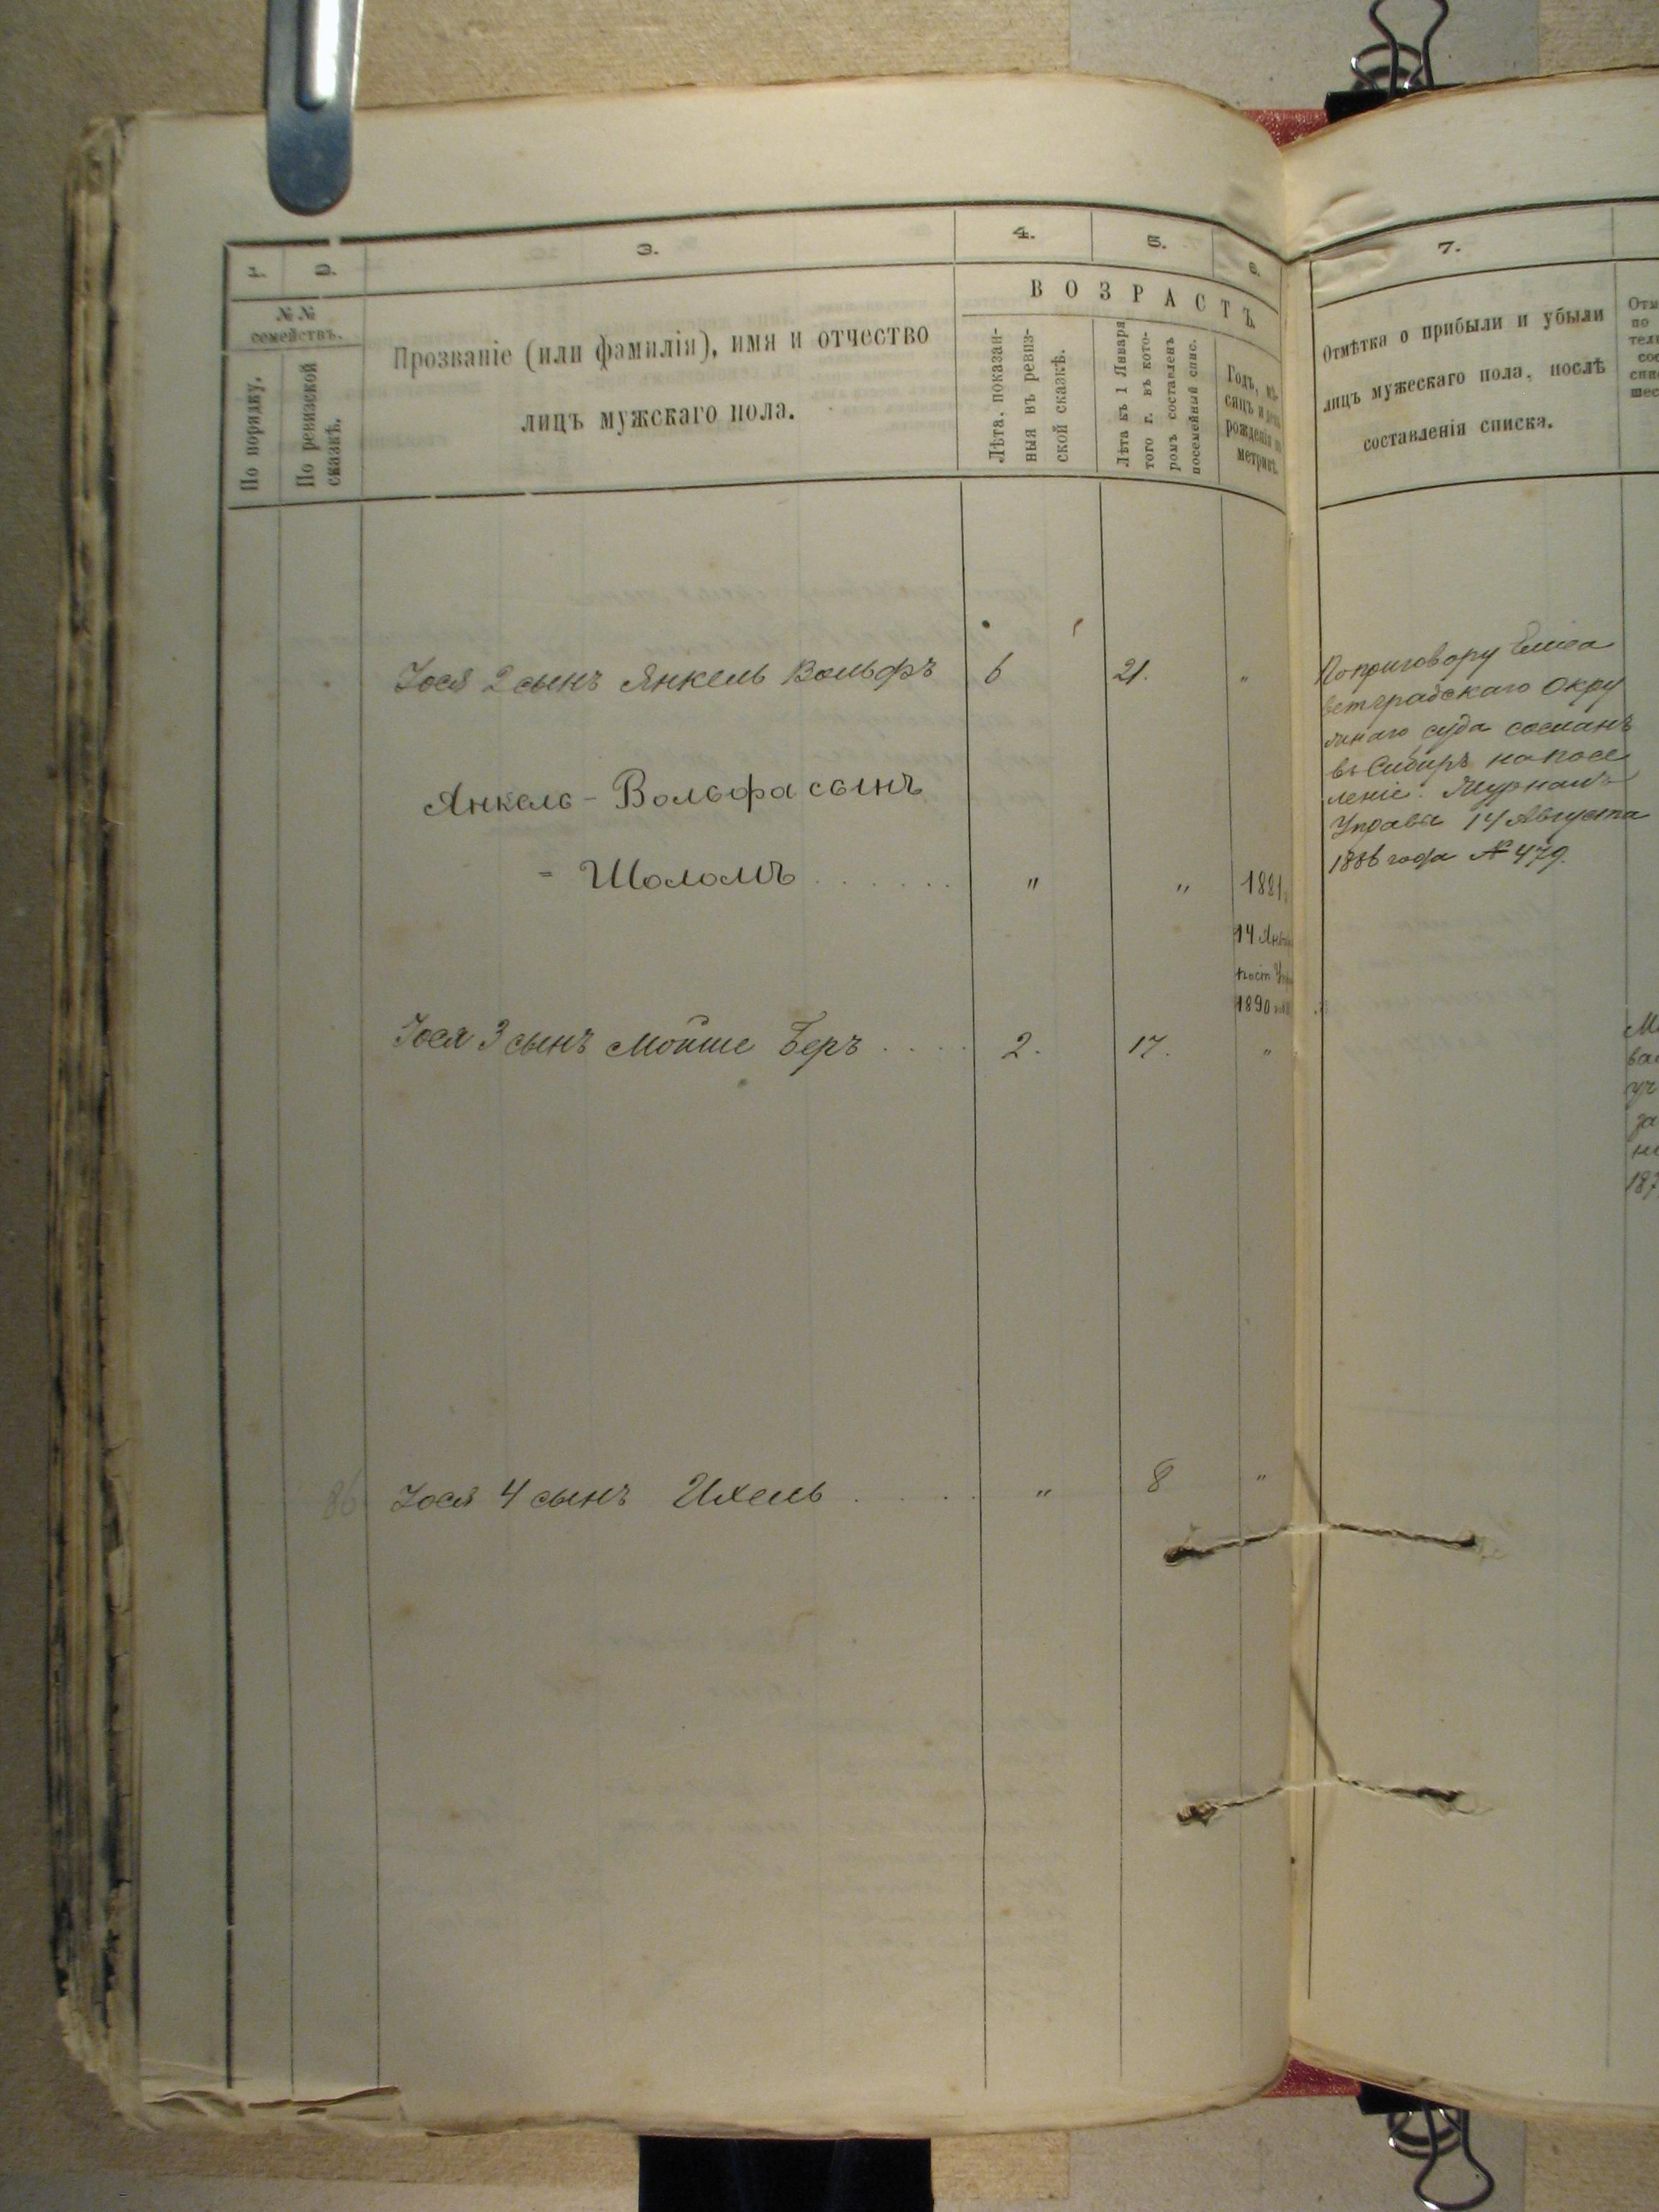 1.
2.
3.
4.
5.
6.
7.
№№
семействъ.
По порядку.
По ревизской
сказкѣ.
Прозваніе (или фамилія), имя и отчество
лицъ мужскаго пола.
ВОЗРАСТЪ
Лѣта, показан-
ныя въ ревиз-
ской сказкѣ.
Лѣта къ 1 Января
того г. въ кото-
ромъ составленъ
посемейный спис.
Годъ, мѣ-
сяцъ и день
рожденія по
метрикѣ.
Отмѣтка о прибыли и убыли
лицъ мужескаго пола, послѣ
составленія списка.
Іося 2 сынъ Янкель Вольфъ 6 21. "
По приговору Елиса
ветградскаго Окру
жнаго суда сосланъ
въ Сибирь на посе
леніе. Журналъ
Управы 14 Августа
1886 года № 479.
Янкель-Вольфа сынъ
- Шоломъ . . . . . . . " " 1881
14 Янв
1890
Іося 3 сынъ Мойше Беръ . . . . 2. 17. "
86 Іося 4 сынъ Ихель . . . . " 8 "